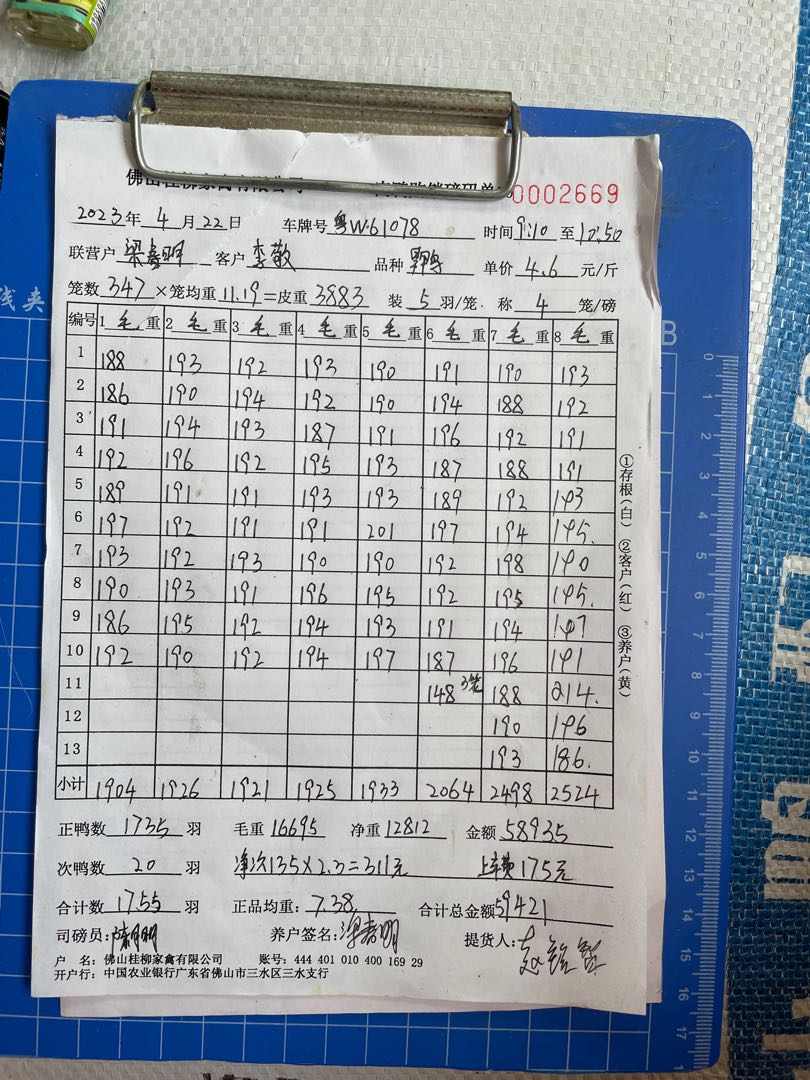 佛山桂柳家禽有限公司 肉鸭购销磅码单 0002669
2023年 4 月 22 日 车牌号 粤W·61078 时间 9:10 至 10:50
联营户 梁春明 客户 李敬 品种 单价 4.6 元/斤
笼数 347 ×笼均重 11.19 =皮重 3883 装 5 羽/笼, 称 4 笼/磅
编号 1 毛 重 2 毛 重 3 毛 重 4 毛 重 5 毛 重 6 毛 重 7 毛 重 8 毛 重
1 188 193 192 193 190 191 190 193
2 186 190 194 192 190 194 188 192
3 191 194 193 187 191 196 192 191
4 192 196 192 195 193 187 188 191
5 189 191 191 193 193 189 192 193
6 197 192 191 191 201 197 194 195.
7 193 192 193 190 190 192 198 190
8 190 193 191 196 195 192 195 195.
9 186 195 192 194 193 191 194 197
10 192 190 192 194 197 187 196 191
11 148 3笼 188 214.
12 190 196
13 193 186.
小计 1904 1926 1921 1925 1933 2064 2498 2524
正鸭数 1735 羽 毛重 16695 净重 12812 金额 58935
次鸭数 20 羽 净次135×2.3=311元 上车费175元
合计数 1755 羽 正品均重: 7.38 合计总金额 59421
司磅员: 养户签名: 梁春明 提货人:
户 名: 佛山桂柳家禽有限公司 账号: 444 401 010 400 169 29
开户行: 中国农业银行广东省佛山市三水区三水支行
①存根(白) ②客户(红) ③养户(黄)
线夹
B
0 1 2 3 4 5 6 7 8 9 10 11 12 13 14 15 16 17